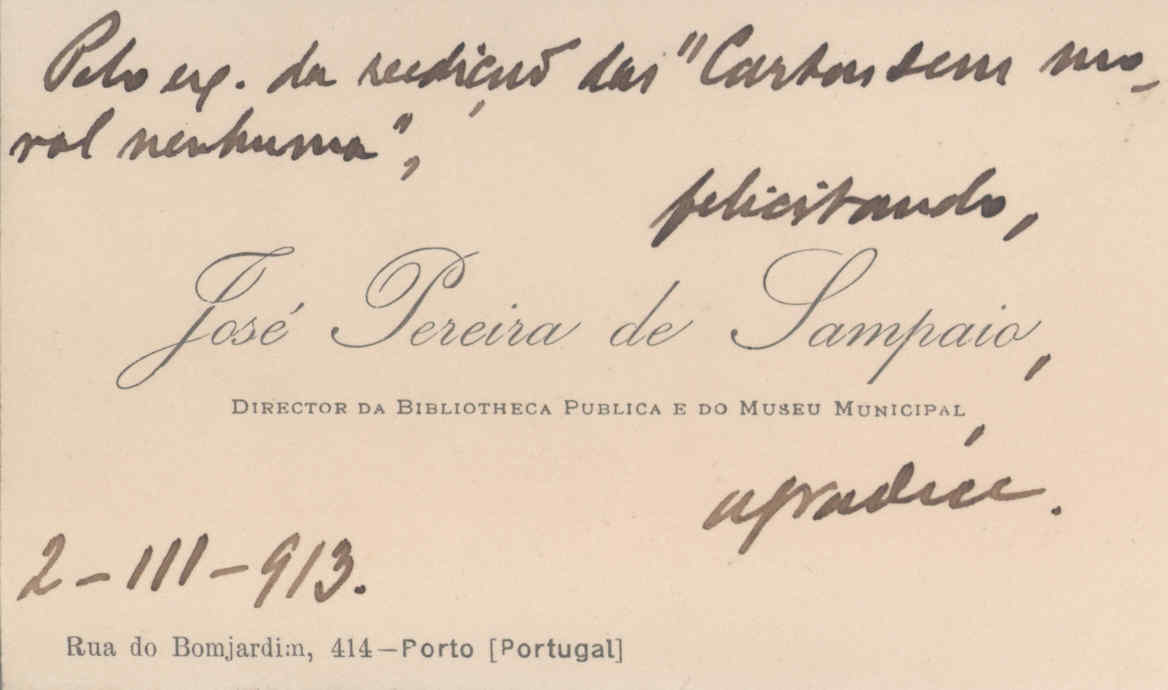 Pelo ex. da reedição das "Cartas sem mo-
ral nenhuma",
felicitando,
José Pereira de Sampaio,
DIRECTOR DA BIBLIOTHECA PUBLICA E DO MUSEU MUNICIPAL,
agradece.
2-III-913.
Rua do Bomjardim, 414—Porto [Portugal]